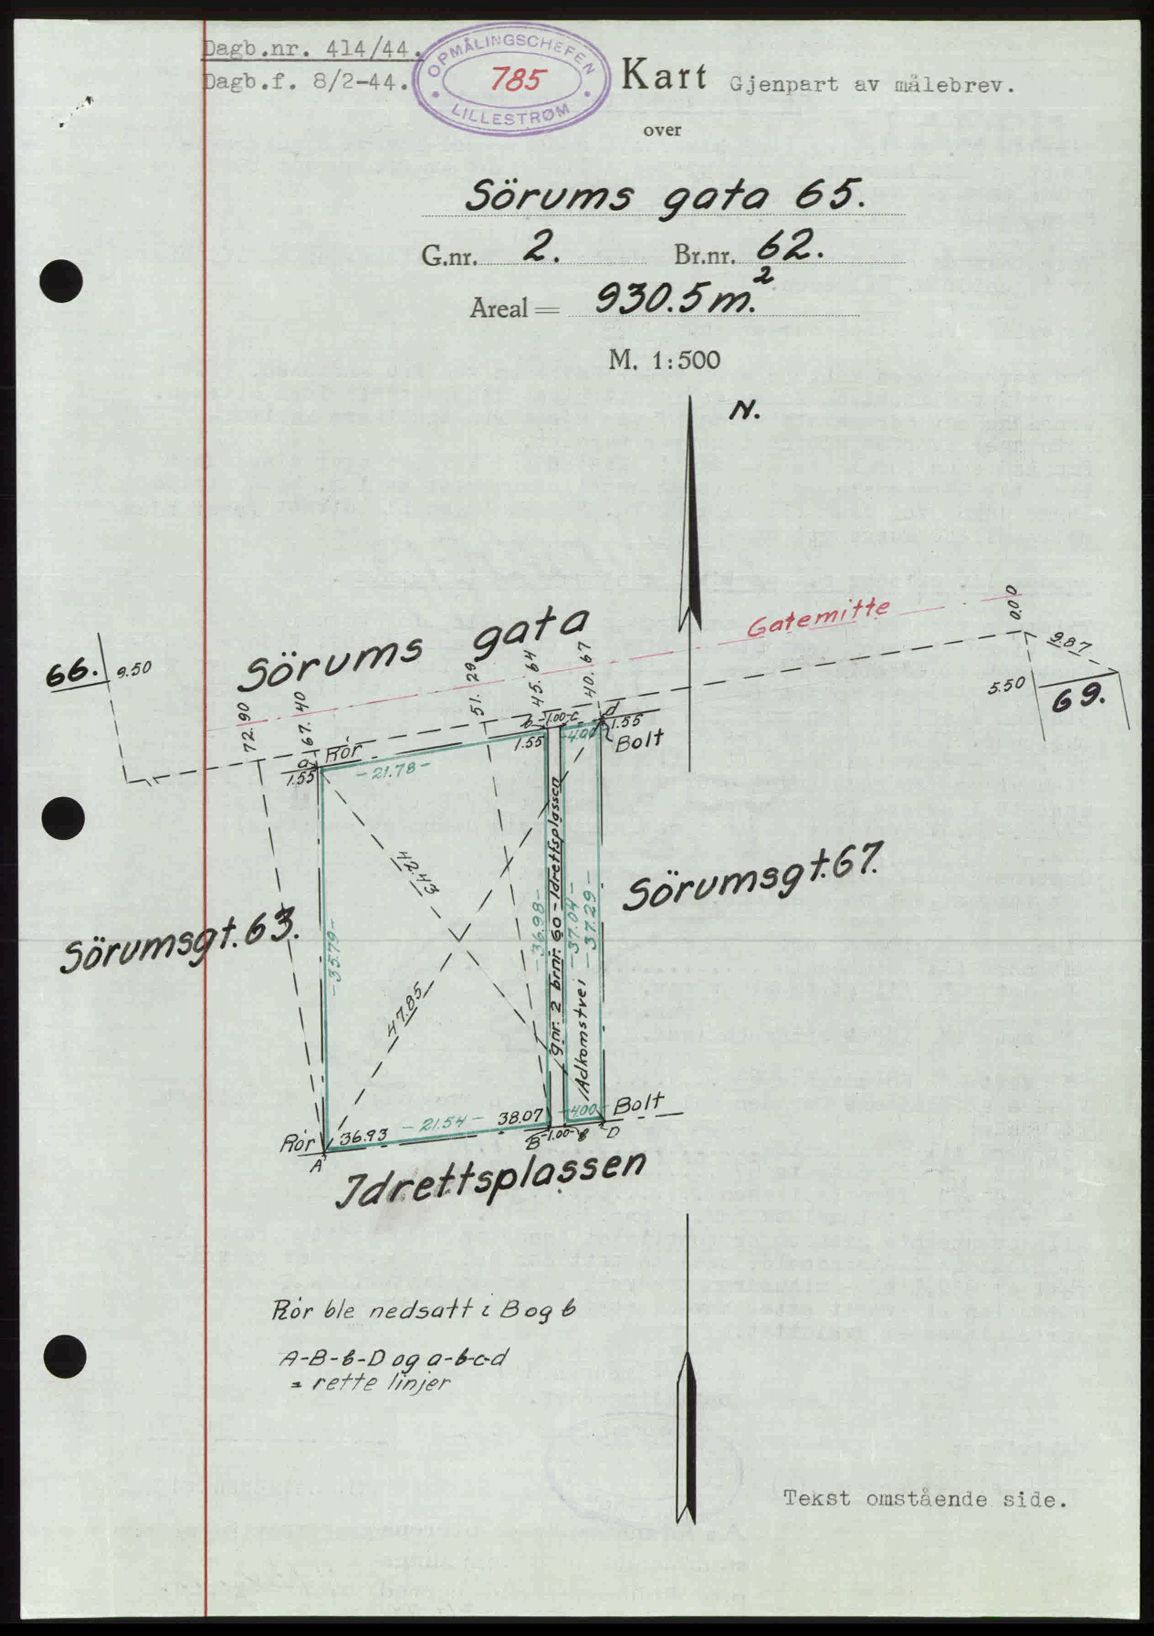 Dagb.nr. 414/44.
Dagb.f. 8/2-44.
OPMÅLINGSCHEFEN
785
LILLESTRØM
Kart Gjenpart av målebrev.
over
Sörums gata 65.
G.nr. 2. Br.nr. 62.
Areal = 930.5 m.²
M. 1:500
N.
Sörums gata
Gatemitte
0.00
9.87
5.50
69.
66.
9.50
72.90
67.40
51.29
45.64
40.67
a
Rör
1.55
-21.78-
b -1.00- c
1.55
-4.00-
d
1.55
Bolt
42.43
47.85
-35.79-
-36.98-
gnr. 2 brnr. 60 - Idrettsplassen
-37.04-
Adkomstvei
-37.29-
Sörumsgt. 63.
Sörumsgt. 67.
Rör
A
36.93
-21.54-
38.07
B
-1.00-
-4.00-
D
Bolt
Idrettsplassen
Rör ble nedsatt i B og b
A-B-b-D og a-b-c-d
= rette linjer
Tekst omstående side.